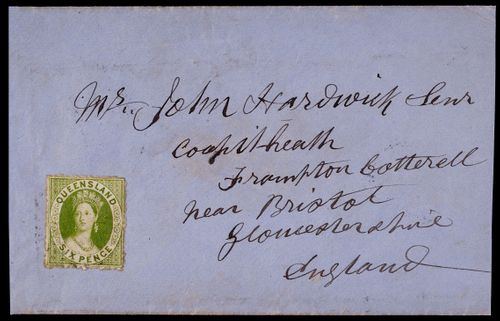 Mr. John Hardwick Senr
Coalpit-heath
Frampton Cotterell
near Bristol
Gloucestershire
England
QUEENSLAND
SIX PENCE